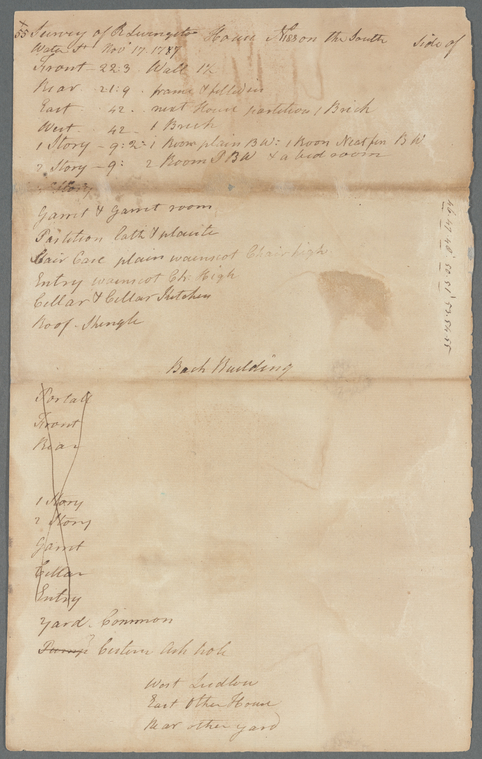 55 Survey of R Livingston House No 188 on the South Side of
Water St Novr 17. 1787
Front - 22:3 Wall 1½
Rear - 21:9 - frame & filled in
East 42 - next House partition 1 Brick
West 42 - 1 Brick
1 Story - 9:2: 1 Room plain B W: 1 Room Neat fin B W
2 Story - 9: 2 Room P B W & a bed room
Story
Garret & Garret room
Partition Lath & plaister
Stair Case plain wainscot Chair high
Entry wainscot Ch: High
Cellar & Cellar Kitchen
Roof - Shingle
Back Building
Front
Rear
1 Story
2 Story
Garret
Cellar
Entry
Yard. Common
Pump Cistern Ash hole
West Ludlow
East Other House
Rear other yard